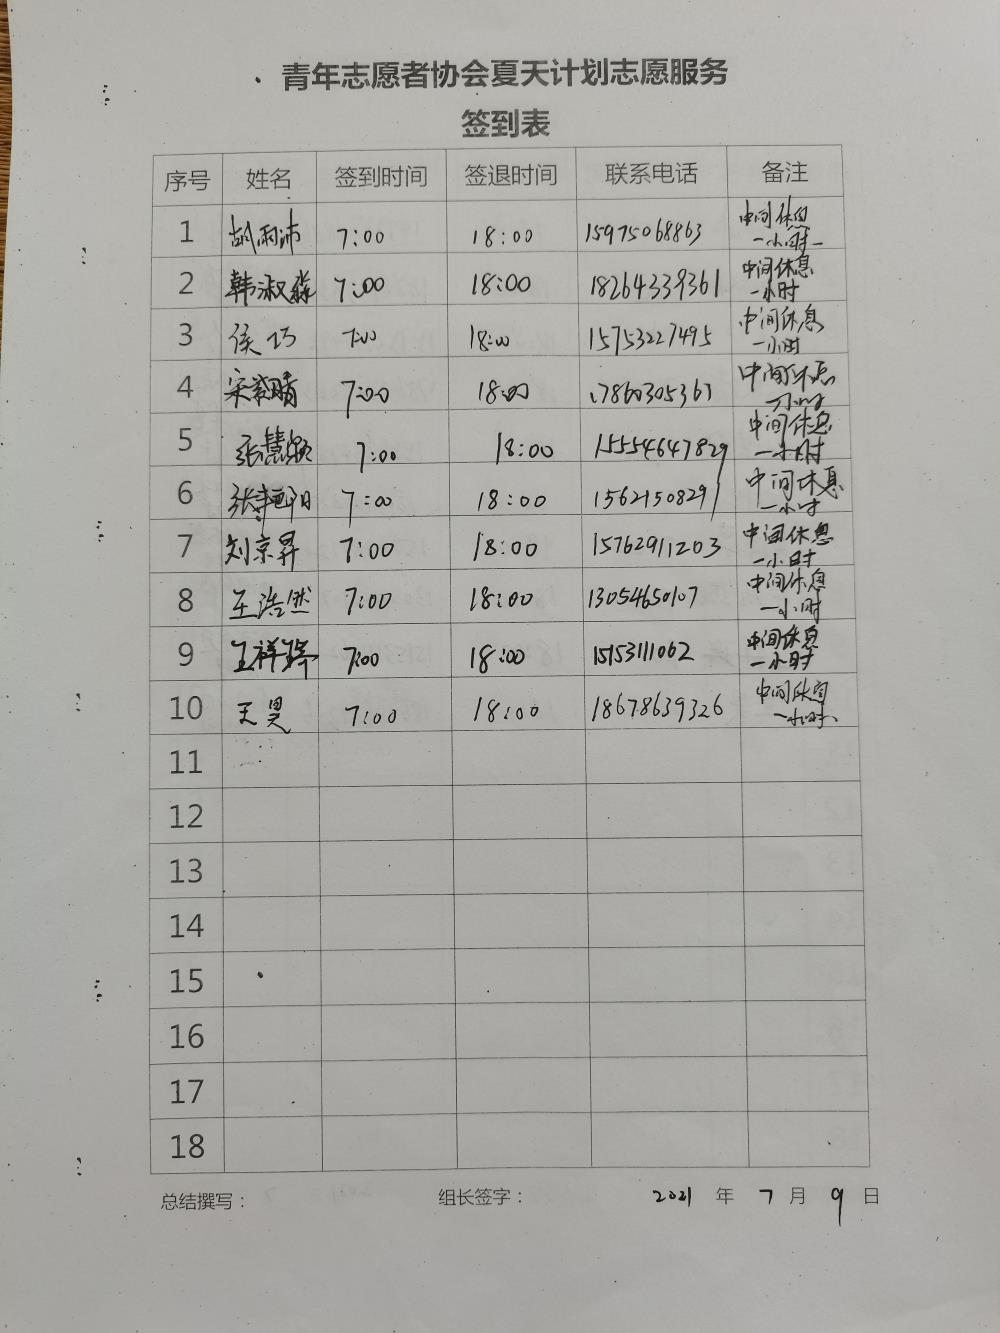 青年志愿者协会夏天计划志愿服务
签到表
序号 姓名 签到时间 签退时间 联系电话 备注
1 胡雨沛 7:00 18:00 15975068863 中间休息一小时
2 韩淑淼 7:00 18:00 18264339361 中间休息一小时
3 侯巧 7:00 18:00 15753227495 中间休息一小时
4 宋 晴 7:00 18:00 17860305361 中间休息一小时
5 张慧颖 7:00 18:00 15554647829 中间休息一小时
6 张艳阳 7:00 18:00 15621508291 中间休息一小时
7 刘京昇 7:00 18:00 15762911203 中间休息一小时
8 王浩然 7:00 18:00 13054650107 中间休息一小时
9 王祥 7:00 18:00 15153111062 中间休息一小时
10 王昊 7:00 18:00 18678639326 中间休息一小时
11
12
13
14
15
16
17
18
总结撰写： 组长签字： 2021 年 7 月 9 日